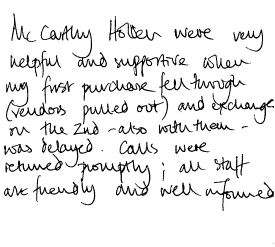 Mc Carthy Holden were very
helpful and supportive when
my first purchase fell through
(vendors pulled out) and exchange
on the 2nd - also with them -
was delayed. Calls were
returned promptly ; all staff
are friendly and well informed